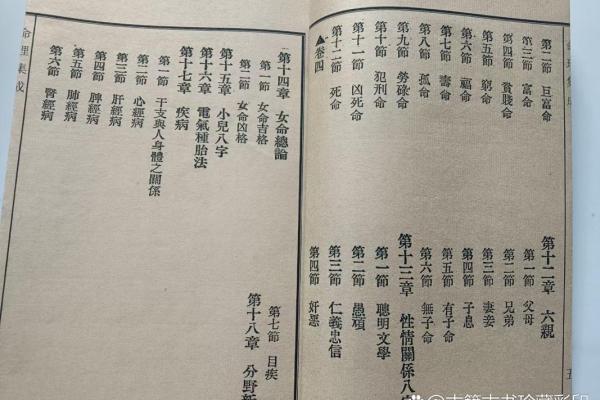 第二節 巨富命
第三節 富命
第四節 貧賤命
第五節 窮命
第六節 福命
第七節 壽命
第八節 孤命
第九節 勞碌命
第十節 犯刑命
第十一節 凶死命
第十二節 死命
▲卷四
第十二章 六親
第一節 父母
第二節 兄弟
第三節 妻妾
第四節 子息
第五節 有子命
第六節 無子命
第十三章 性情關係八
第一節 聰明文學
第二節 愚頑
第三節 仁義忠信
第四節 奸惡
第十四章 女命總論
第一節 女命吉格
第二節 女命凶格
第十五章 小兒八字
第十六章 電氣種胎法
第十七章 疾病
第一節 干支與人身體之關係
第二節 心經病
第三節 肝經病
第四節 脾經病
第五節 肺經病
第六節 腎經病
第七節 目疾
第十八章 分野
命理集成
古籍古书珍藏影印